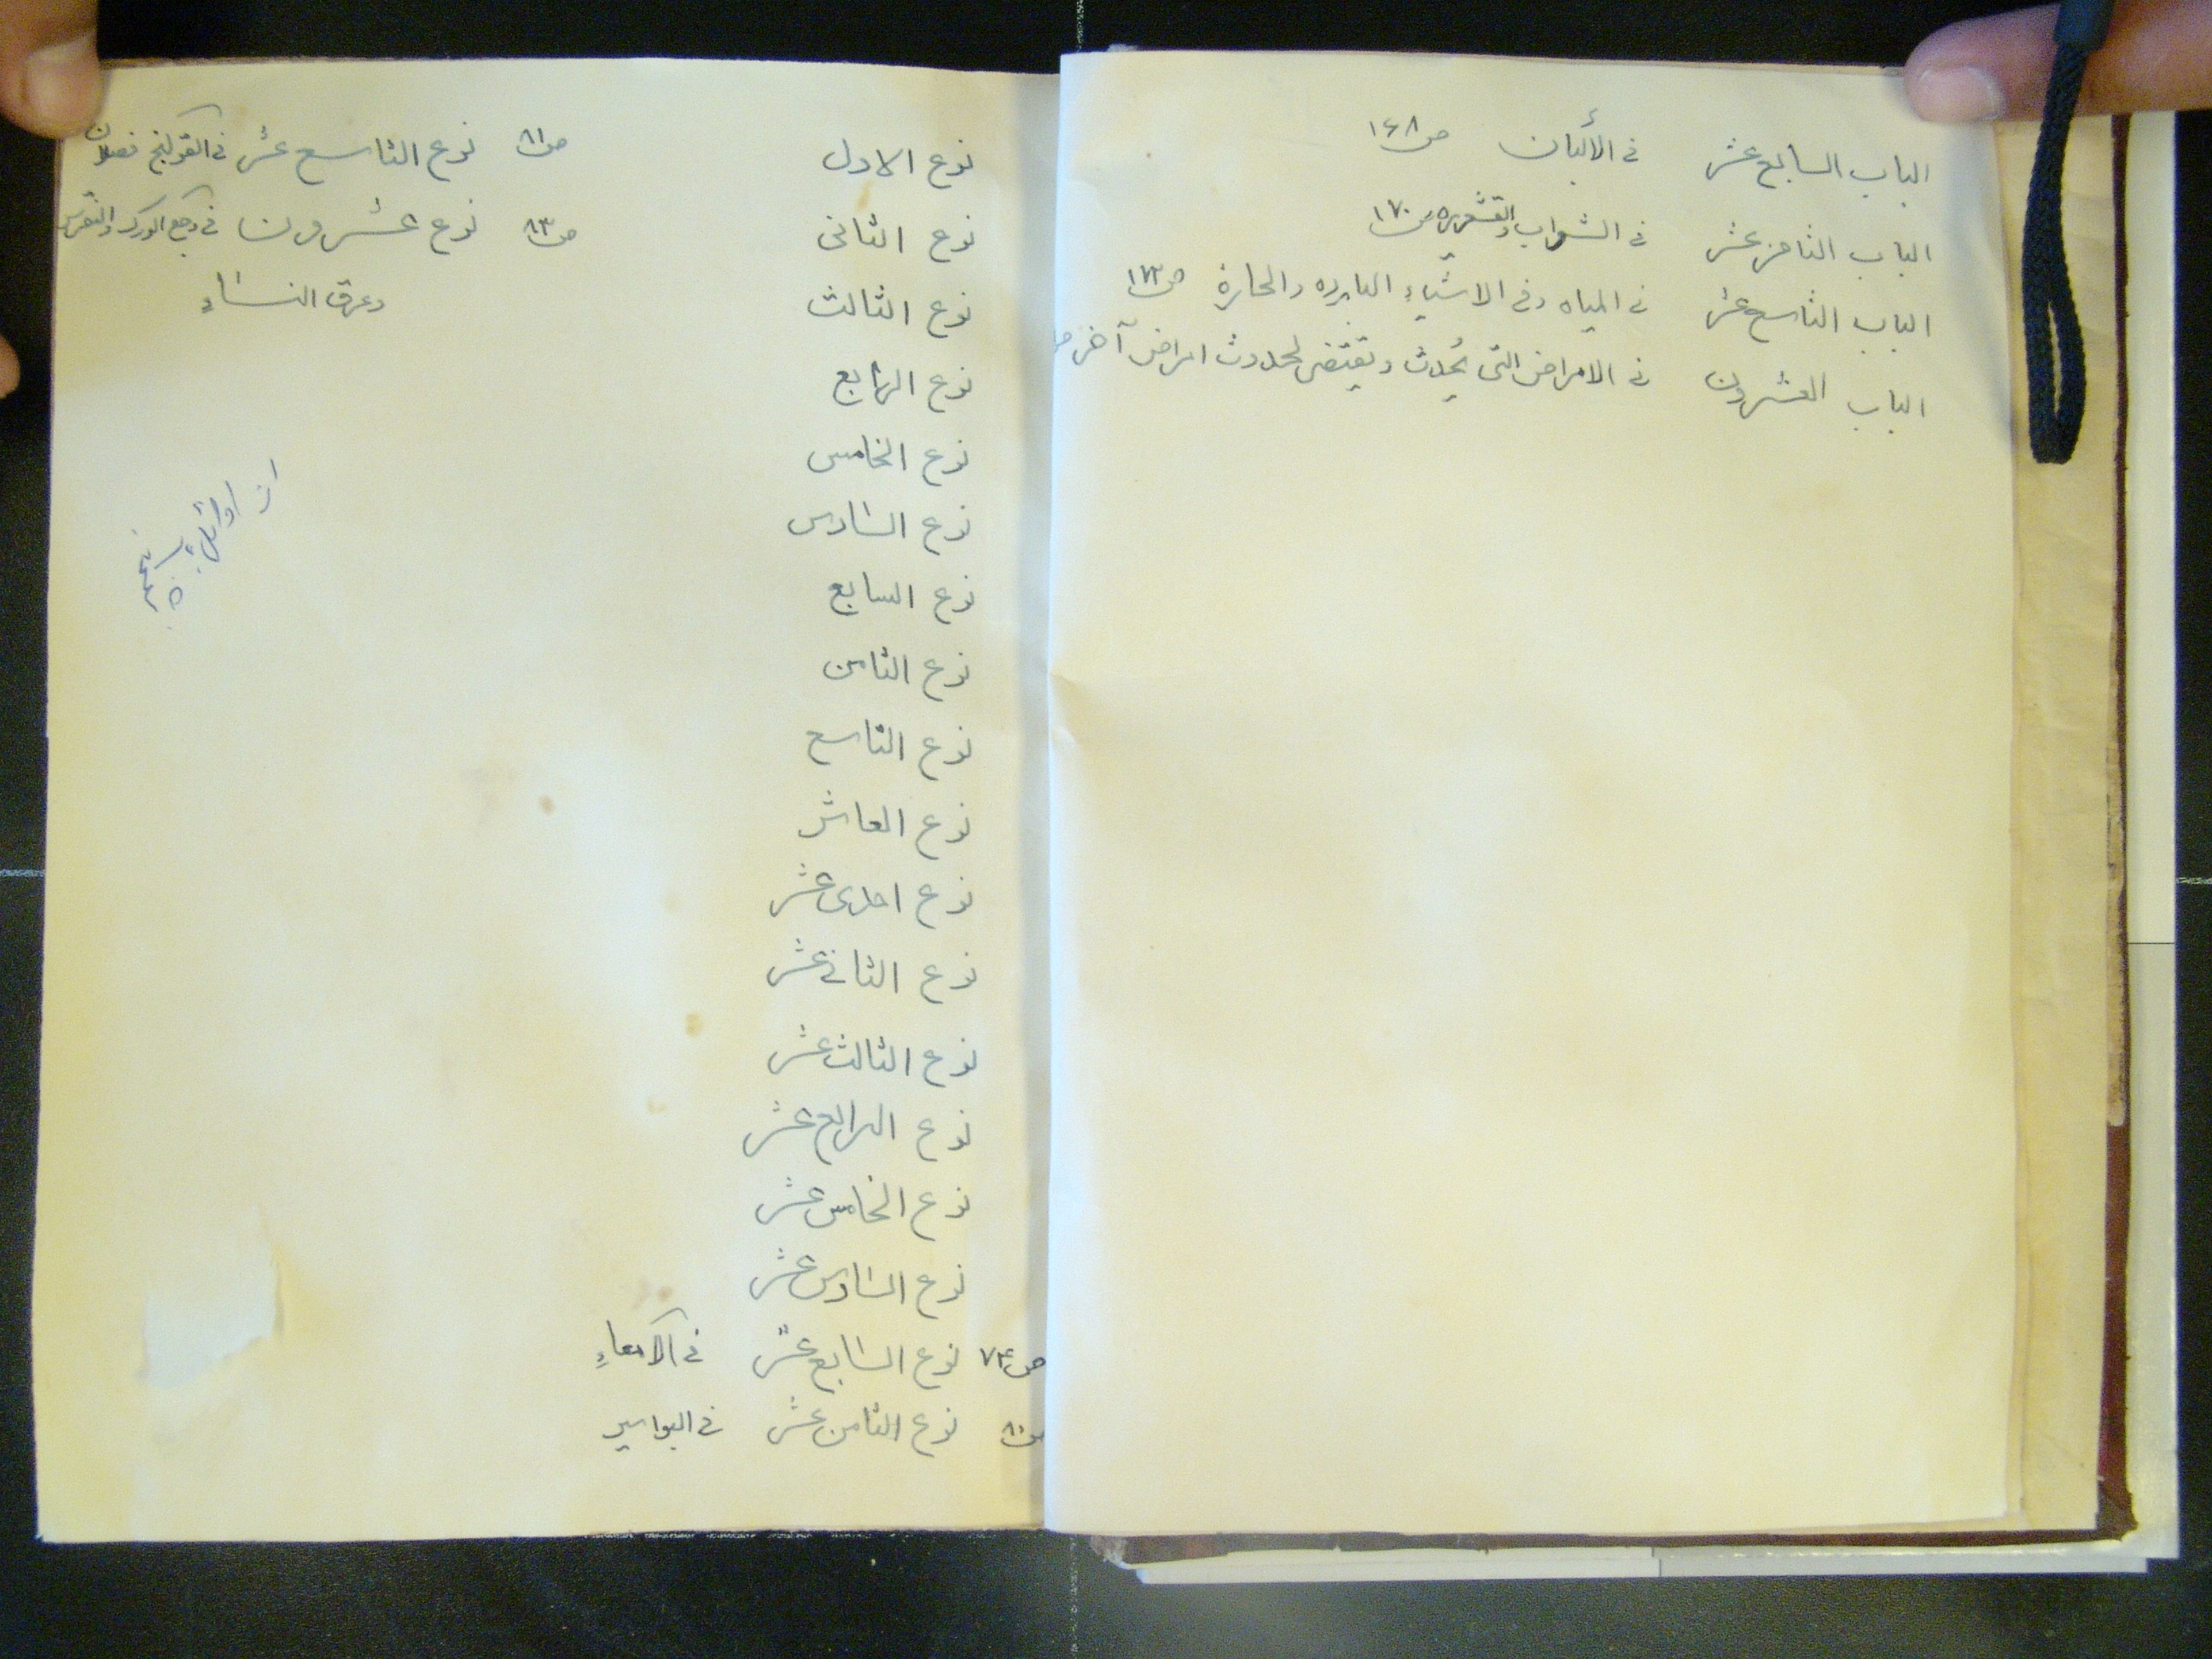 الباب السابع عشر في الألبان ص ١٦٨
الباب الثامن عشر في الشراب والقشعريره ص ١٧٠
الباب التاسع عشر في المياه وفي الاشياء البارده والحارة ص ١٧٣
الباب العشرون في الامراض التى يُحدث ويقتضى لحدوث امراض آخر ص
نوع الاول
نوع الثانى
نوع الثالث
نوع الرابع
نوع الخامس
نوع السادس
نوع السابع
نوع الثامن
نوع التاسع
نوع العاشر
نوع احدى عشر
نوع الثاني عشر
نوع الثالث عشر
نوع الرابع عشر
نوع الخامس عشر
نوع السادس عشر
ص ٧٤ نوع السابع عشر في الامعاءِ
ص ٨٠ نوع الثامن عشر في البواسير
ص ٨١ نوع التاسع عشر في القولنج فصلان
ص ٨٣ نوع عشرون في وجع الورك والنقرس
وعرق النساءِ
از اوائل